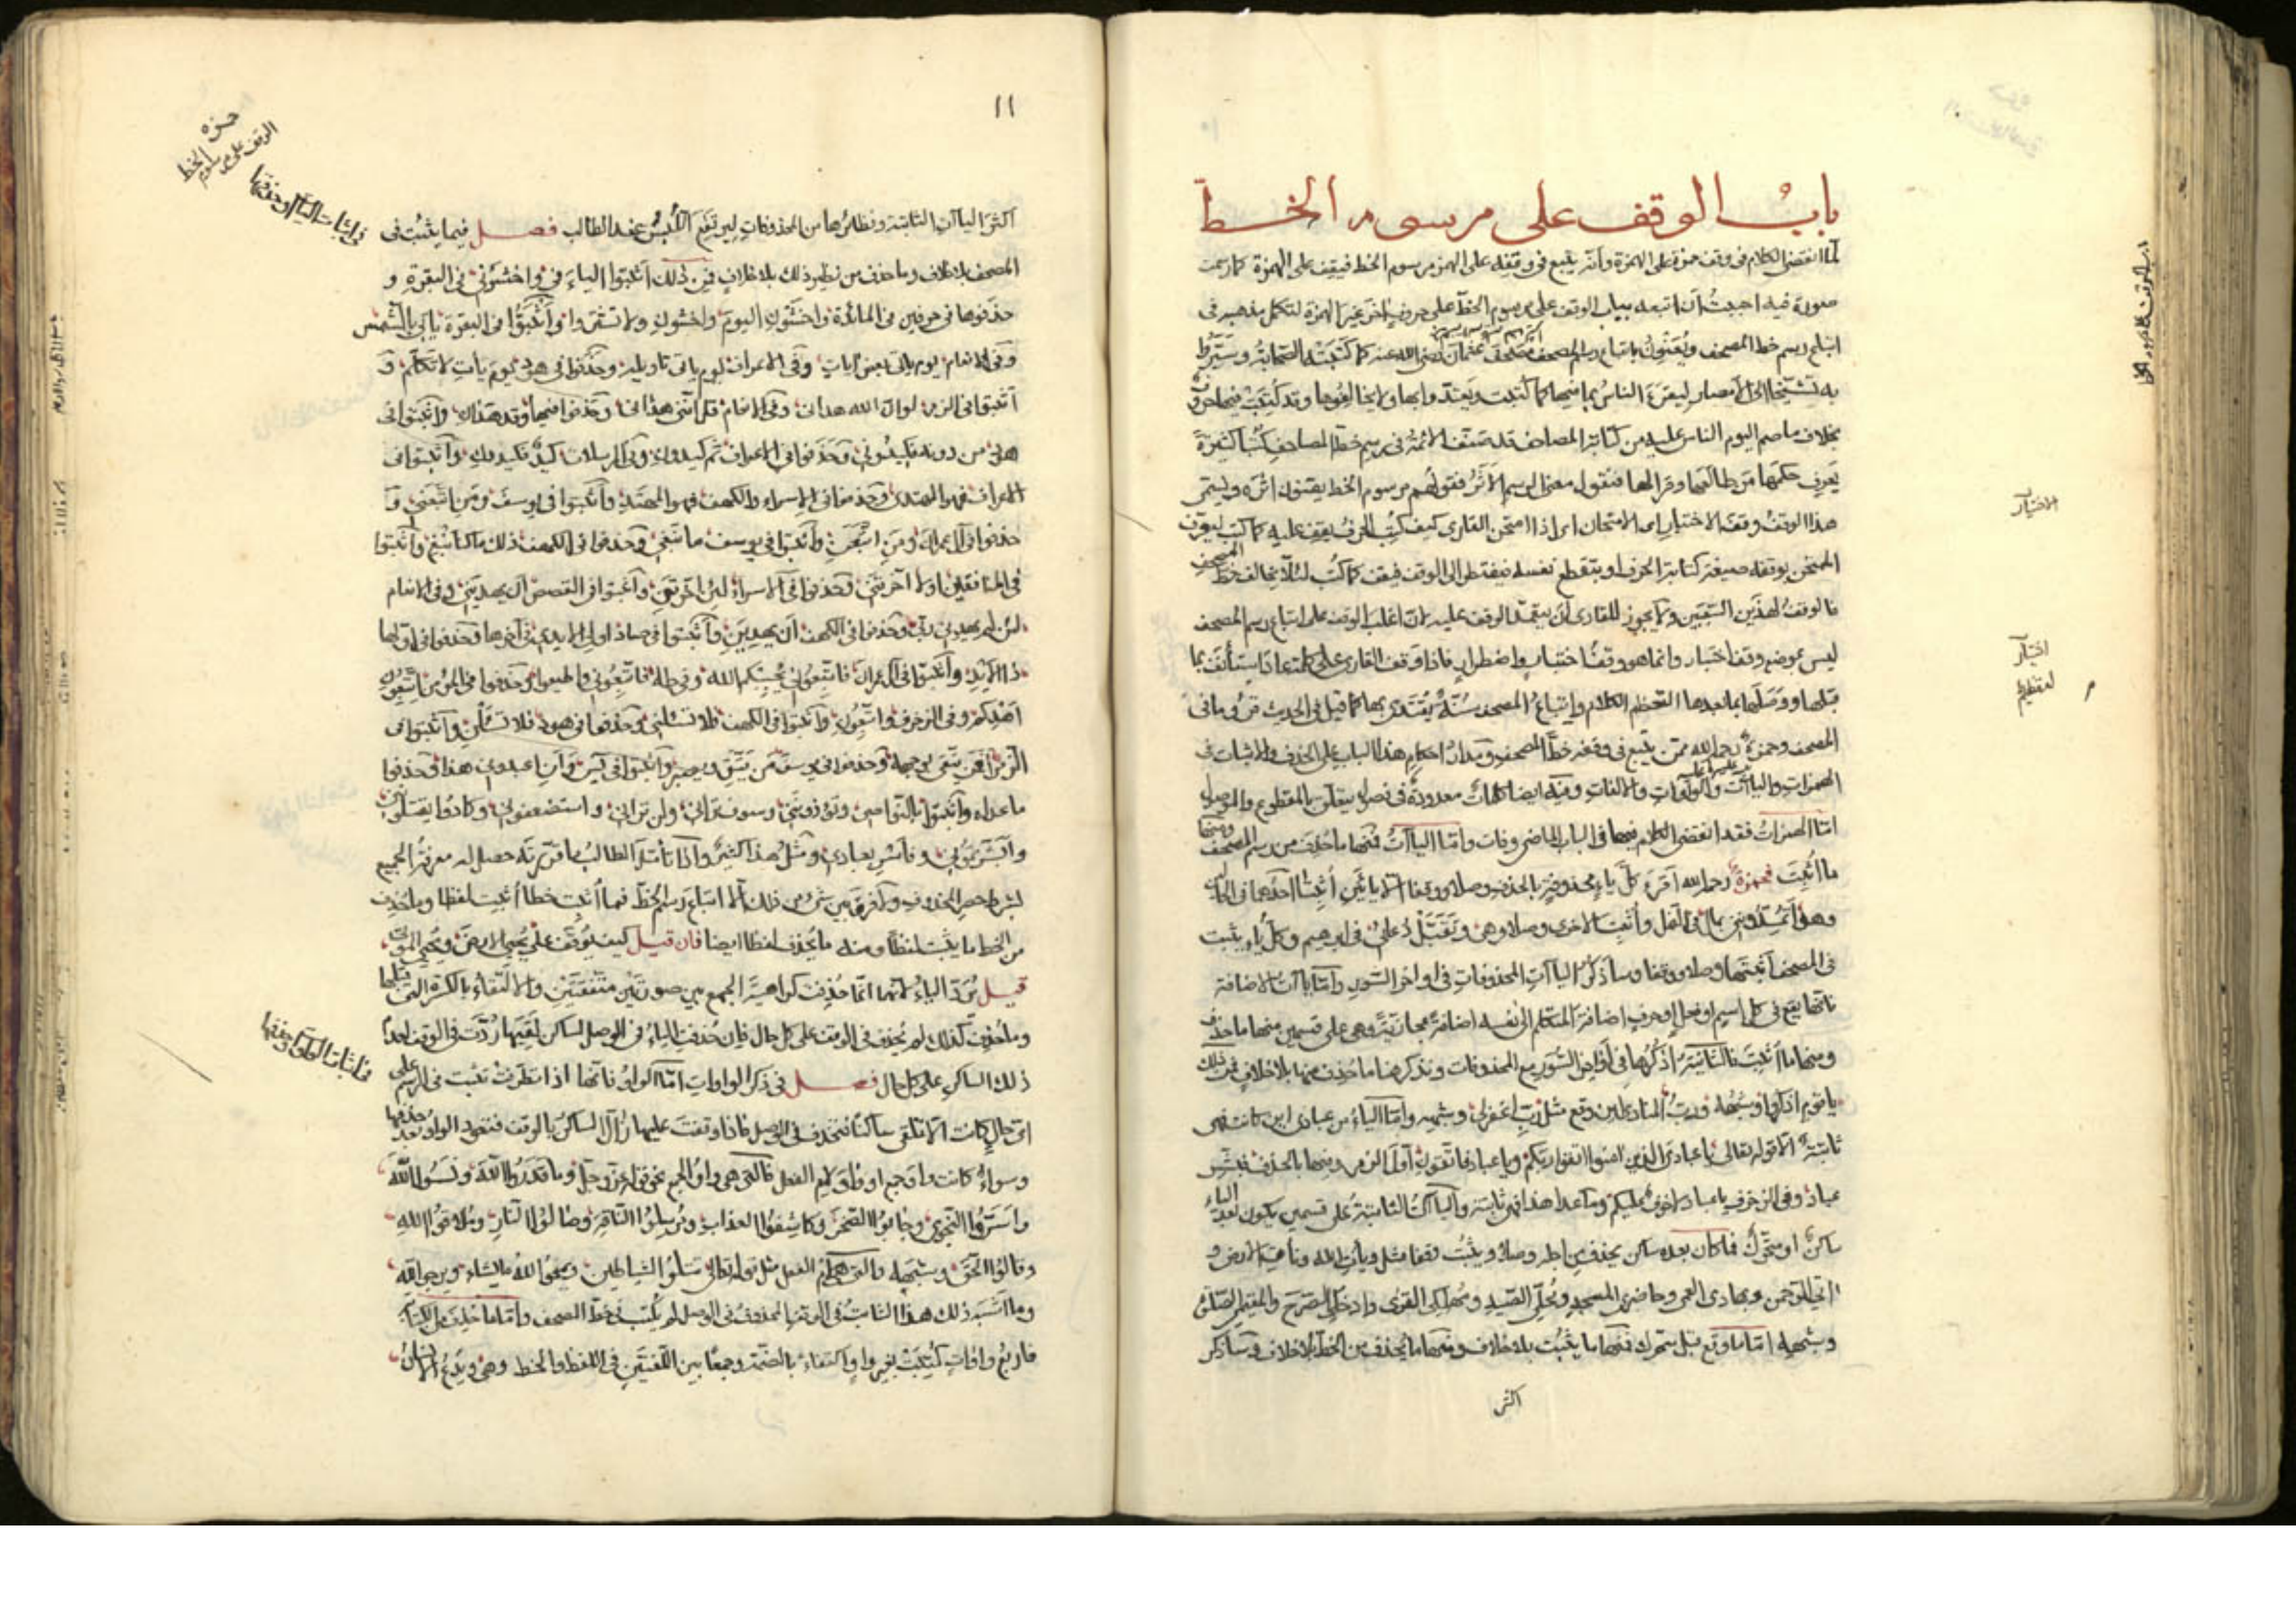 باب الوقف على مرسوم الخط
لما انقضى الكلام في وقف حمزة على الهمزة وأنه يتبع في وقفه على الهمز مرسوم الخط فيقف على الهمزة كما رسمت
صورة فيه احببت أن اتبعه بباب الوقف على مرسوم الخط على حروف اخر غير الهمزة لتكمل مذهبه في
اتباع رسم خط المصحف ويعنون باتباع رسم المصحف مصحف عثمان رضي الله عنه كما كتبته الصحابة وسيره
به نسخا الى الامصار ليقرئ الناس بما فيها كما كتبت ويعتد وابها ولا يخالفوها وقد كتبت فيها احرف
بخلاف ما صم اليوم الناس عليه من كتابة المصاحف قد صنف الائمة في رسم خط المصاحف كتبا كثيرة
يعرف حكمها من طالعها وقرالها فنقول معنى الرسم الاثر فقولهم مرسوم الخط يعنون اثره ويسمى
هذا الوقف وقف الاختبار اى الامتحان اى اذا امتحن القارى كيف كتب الحرف يقف عليه كما كتب ليعرف
الممتحن بوقفه صيغة كتابة الحرف او ينقطع نفسه فيضطر الى الوقف فيقف كما كتب لئلا يخالف خط المصحف
فالوقف لهذين السببين ولا يجوز للقارى أن يتعمد الوقف عليه لان اغلب الوقف على اتباع رسم المصحف
ليس بموضع وقف اختيار وانما هو وقف اختبار واضطرار فاذا وقف القارى على كلمة عاد استأنف بما
قبلها ووصلها بما بعدها النظم الكلام واتباع المصحف سنة يقتدى بها كما قيل في الحديث قرئ ما في
المصحف وحمزة رحمه الله ممن يتبع في وقفه خط المصحف ومدار احكام هذا الباب على الحذف والاثبات في
الهمزات والياآت والواوات والالفات وفيه ايضا كلمات معدودة في فصل يتعلق بالمقطوع والموصول
امّا الهمزات فقد انقضى الكلام فيها في الباب الماضى وفات واما الياآت فمنها ما حذف من رسم المصحف ومنها
ما أثبت فحمزة رحمه الله اقرء كل ياء محذوفة بالحذف وصلا ووقفا الا يائين أثبت احدهما في الحالين
وهو أتمدونن بمال في النمل وأثبت الاخرى وصلا وهي وتقبل دعاء في ابرهيم وكل ياء يثبت
في المصحف أثبتها وصلا ووقفا وسأذكر الياآت المحذوفات في اواخر السور وأما ياآت الاضافة
فانها يقع في كل اسم او فعل او حرف اضافة المتكلم الى نفسه اضافة مجازية وهي على قسمين منها ما حذف
ومنها ما أثبت فالثابتة اذكرها في أواخر السور مع المحذوفات ونذكر هنا ما حذف منها بلا خلاف فمن ذلك
يا قوم اذكروا وشبهه ورب المنادى اين وقع مثل رب اغفر لي وشبهه واما الياء من عبادى اين كانت فهى
ثابتة الا قوله تعالى يا عباد الذين امنوا اتقوا ربكم ويا عباد فاتقون أول الزمر وفيها بالحذف فبشر
عباد وفي الزخرف يا عباد لا خوف عليكم وما عدا هذا فهى ثابتة والياآت الثابتة على قسمين يكون بعد الياء
ساكن او متحرك فما كان بعده ساكن يحذف من اجله وصلا ويثبت وقفا مثل ويأتى الله ونأتى الارض و
اتى الرحمن وبهادى العمى وحاضرى المسجد ومحلى الصيد ومهلكى القرى وادخلى الصرح والمقيمى الصلوة
وشبهه امّا ما وقع قبل متحرك فمنها ما يثبت بلا خلاف ومنها ما يحذف من الخط بلا خلاف وسأذكر
اكثر
الاختبار
اختبار
لعظم
١١
اكثر الياآت الثابتة ونظائرها من المحذوفات ليرتفع اللبس عند الطالب فصل فيما يثبت في
المصحف بلا خلاف وما حذف من نظير ذلك بلا خلاف فمن ذلك أثبتوا الياء في واخشونى في البقرة و
حذفوها في حرفين في المائدة واخشون اليوم واخشون ولا تشتروا وأثبتوا في البقرة ياتى بالشمس
وفي الانعام يوم ياتى بعض ايات وفي الاعراف يوم ياتى تاويله وحذفوا في هود يوم يأت لا تكلم و
أثبتوا في الزمر لو ان الله هدانى وفي الانعام قل اننى هدانى وحذفوا فيها وقد هدان وأثبتوا في
هود من دونه فكيدونى وحذفوا في الاعراف ثم كيدون وفي المرسلات كيد فكيدون وأثبتوا في
الاعراف فهو المهتدى وحذفوا في الاسراء والكهف فهو المهتد وأثبتوا في يوسف ومن اتبعنى و
حذفوا في ال عمران ومن اتبعن وأثبتوا في يوسف ما نبغى وحذفوا في الكهف ذلك ما كنا نبغ وأثبتوا
في المنافقين لولا اخرتنى وحذفوا في الاسراء لئن اخرتن وأثبتوا في القصص أن يهدينى وفي الانعام
لئن لم يهدنى ربى وحذفوا في الكهف أن يهدين وأثبتوا في صاد اولى الايدى في آخرها وحذفوا في اولها
ذا الايد وأثبتوا في ال عمران فاتبعونى يحببكم الله وفي طه فاتبعونى واطيعوا وحذفوا في المؤمن اتبعون
اهدكم وفي الزخرف واتبعون وأثبتوا في الكهف فلا تسئلنى وحذفوا في هود فلا تسئلن وأثبتوا في
الزمر افمن يتقى بوجهه وحذفوا في يوسف من يتق ويصبر وأثبتوا في يس وأن اعبدونى هذا وحذفوا
ما عداه وأثبتوا بالنواصى وتؤذوننى وسوف ترانى ولن ترانى واستضعفونى وكادوا يقتلوننى
وأبشرتمونى وفأسر بعبادى ومثل هذا كثير واذا تأمل الطالب ما قررته حصل له معرفة الجميع
بشرط حصر المحذوف ولا فرق بين شئ من ذلك الا اتباع رسم الخط فما أثبت خطا أثبت لفظا وما حذف
من الخط ما يثبت لفظا ومنه ما يحذف لفظا ايضا فان قيل كيف يوقف على يحيى الارض ويحيى الموتى
قيل ترد الياء لانها انما حذفت كراهية الجمع بين صورتين متفقتين والاكتفاء بالكسرة التى قبلها
وما حذف كذلك لم يحذف في الوقف على كل حال فان حذفت الياء في الوصل لساكن لقيها ردت في الوقف لعدم
ذلك الساكن على كل حال فصل في ذكر الواوات امّا الواو فانها اذا تطرفت تثبت في الرسم على
اى حال كانت الا تلقى ساكنا فتحذف في الوصل فاذا وقفت عليها زال الساكن بالوقف فتعود الواو بعد حذفها
وسواء كانت واو جمع او واو لام الفعل فالتى هى واو الجمع نحو قوله عز وجل وما قدروا الله ونسوا الله
واسروا النجوى وجابوا الصخر وكاشفوا العذاب ومرسلوا الناقة وصالوا النار وملاقوا الله
وقالوا الحق وشبهه والتى هى لام الفعل مثل قوله تعالى تتلوا الشياطين ويمحوا الله ما يشاء ويرجوا الله
وما اشبه ذلك هذا الثابت في الوقف المحذوف في الوصل لم يكتب في خط المصحف وأما ما حذف من الكتابة
فاربع واوات كتبت بغير واو اكتفاء بالضمة وجمعا بين اللفظين في اللفظ والخط وهى ويدع الانسان
حمزه
الوقف على مرسوم الخط
في اثبات الياء وحذفها
في اثبات الواو وحذفها